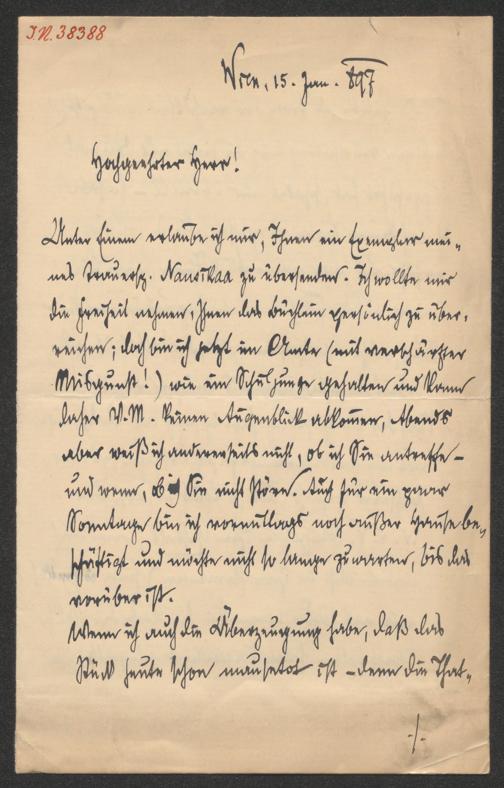 I.N. 38388
Wien, 15. Jan. 897
Hochgeehrter Herr!
Unter Einem erlaube ich mir, Ihnen ein Exemplar mei-
nes Trauersp. Nausikaa zu übersenden. Ich wollte mir
die Freiheit nehmen, Ihnen das Büchlein persönlich zu über-
reichen; doch bin ich jetzt im Amte (mit verschärfter
Misgunst!) wie ein Schuljunge gehalten und kann
daher V.M. keinen Augenblick abkommen, Abends
aber weiß ich andererseits nicht, ob ich Sie antreffe –
und wenn, ob ich Sie nicht störe. Auch für ein paar
Sonntage bin ich vormittags noch außer Hause be-
schäftigt und möchte nicht so lange zuwarten, bis das
vorüber ist.
Wenn ich auch die Überzeugung habe, daß das
Stück heute schon mausetot ist – denn die That-
./.